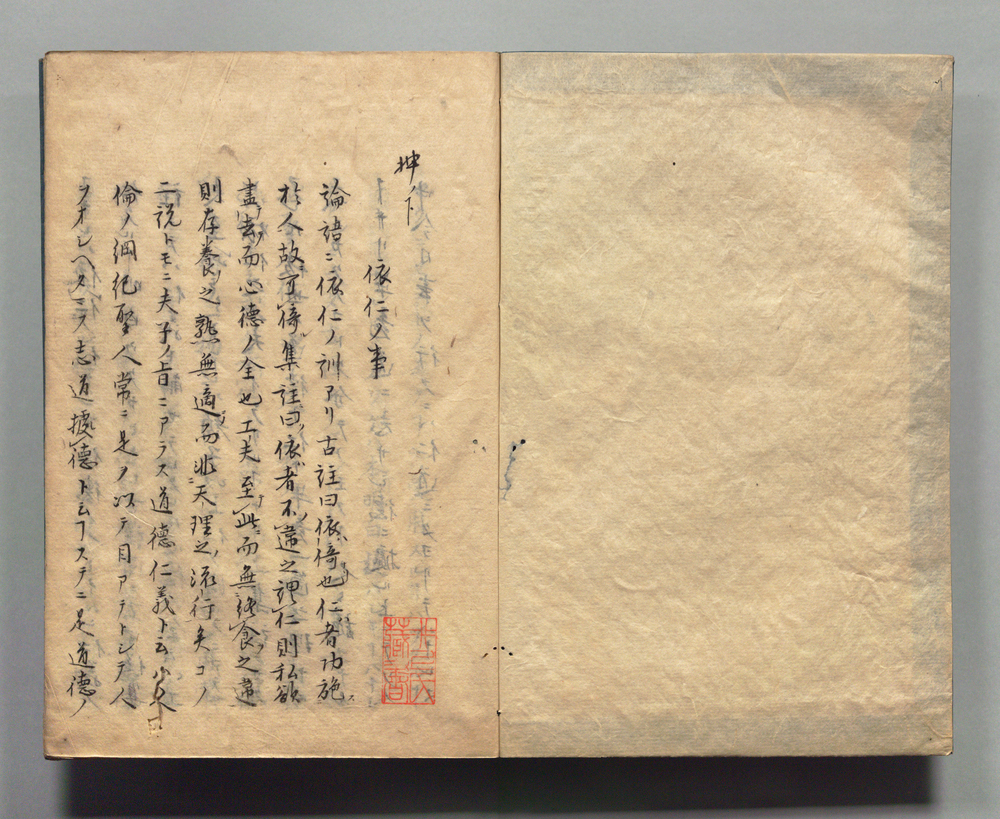 坤ノ下
依仁ノ事
論語ニ依仁ノ訓アリ古註曰依倚也仁者功施
於人故可倚集註曰依者不違之謂仁則私欲
盡去而心德ノ全也工夫至此而無終食之違
則存養之熟無適而非天理之流行矣コノ
二説トモニ夫子ノ旨ニアラス道德仁義ト云
倫ノ綱紀聖人常ニ是ノ以テ目アテトシテ人
ヲオシヘタマフ志道據德ト云フステニ是道德ノ